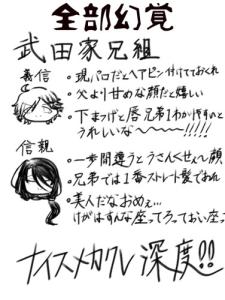 全部幻覚
武田家兄組
義信
・現パロだとヘアピン付けてておくれ
・父より甘めな顔だと嬉しい
・下まつげと唇兄弟1わかりやすいと
うれしいな〜〜〜〜!!!!!
信親
・一歩間違うとうさんくせぇ〜顔
・兄弟では1番ストレート髪であれ
・美人だなおめぇ…
けがはすんな座ってろっておい座っ
ナイスメカクレ深度!!